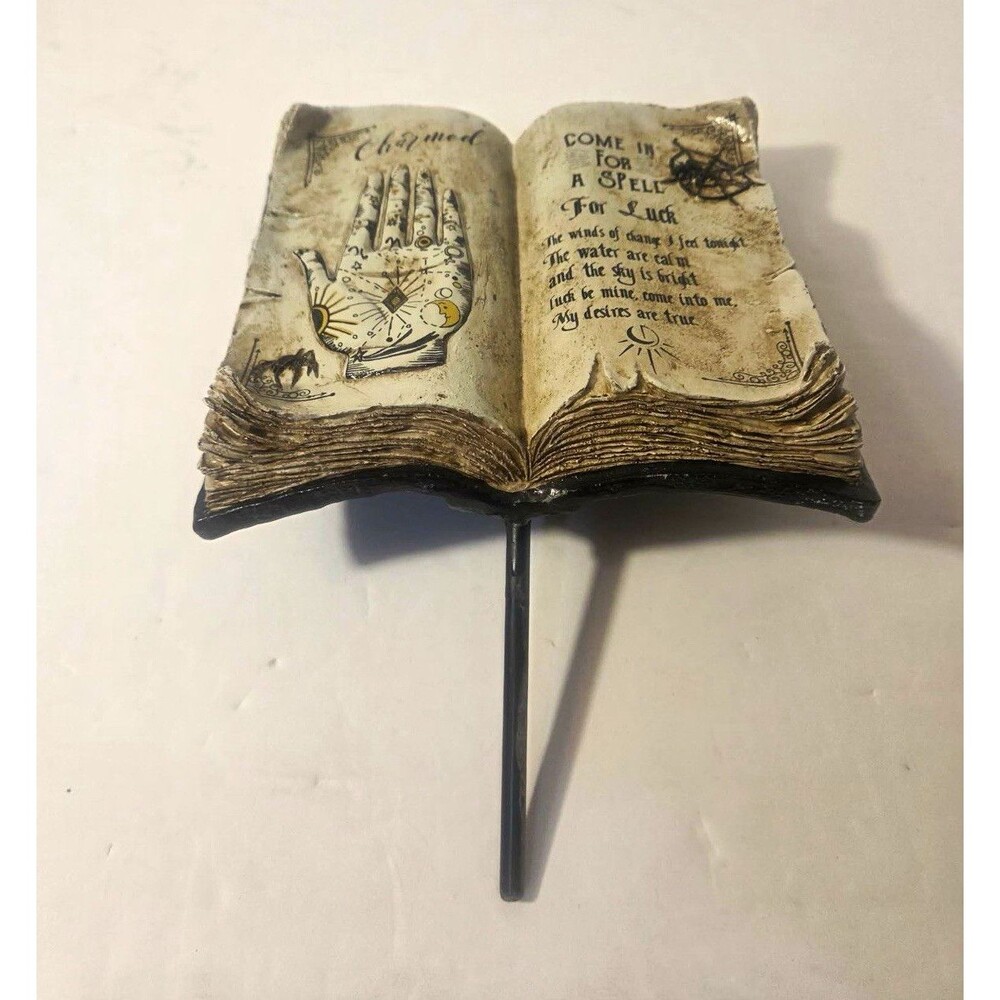 Charmed
COME IN
FOR
A SPELL
For Luck
The winds of change I feel tonight
The water are calm
and the sky is bright
luck be mine, come into me,
My desires are true.